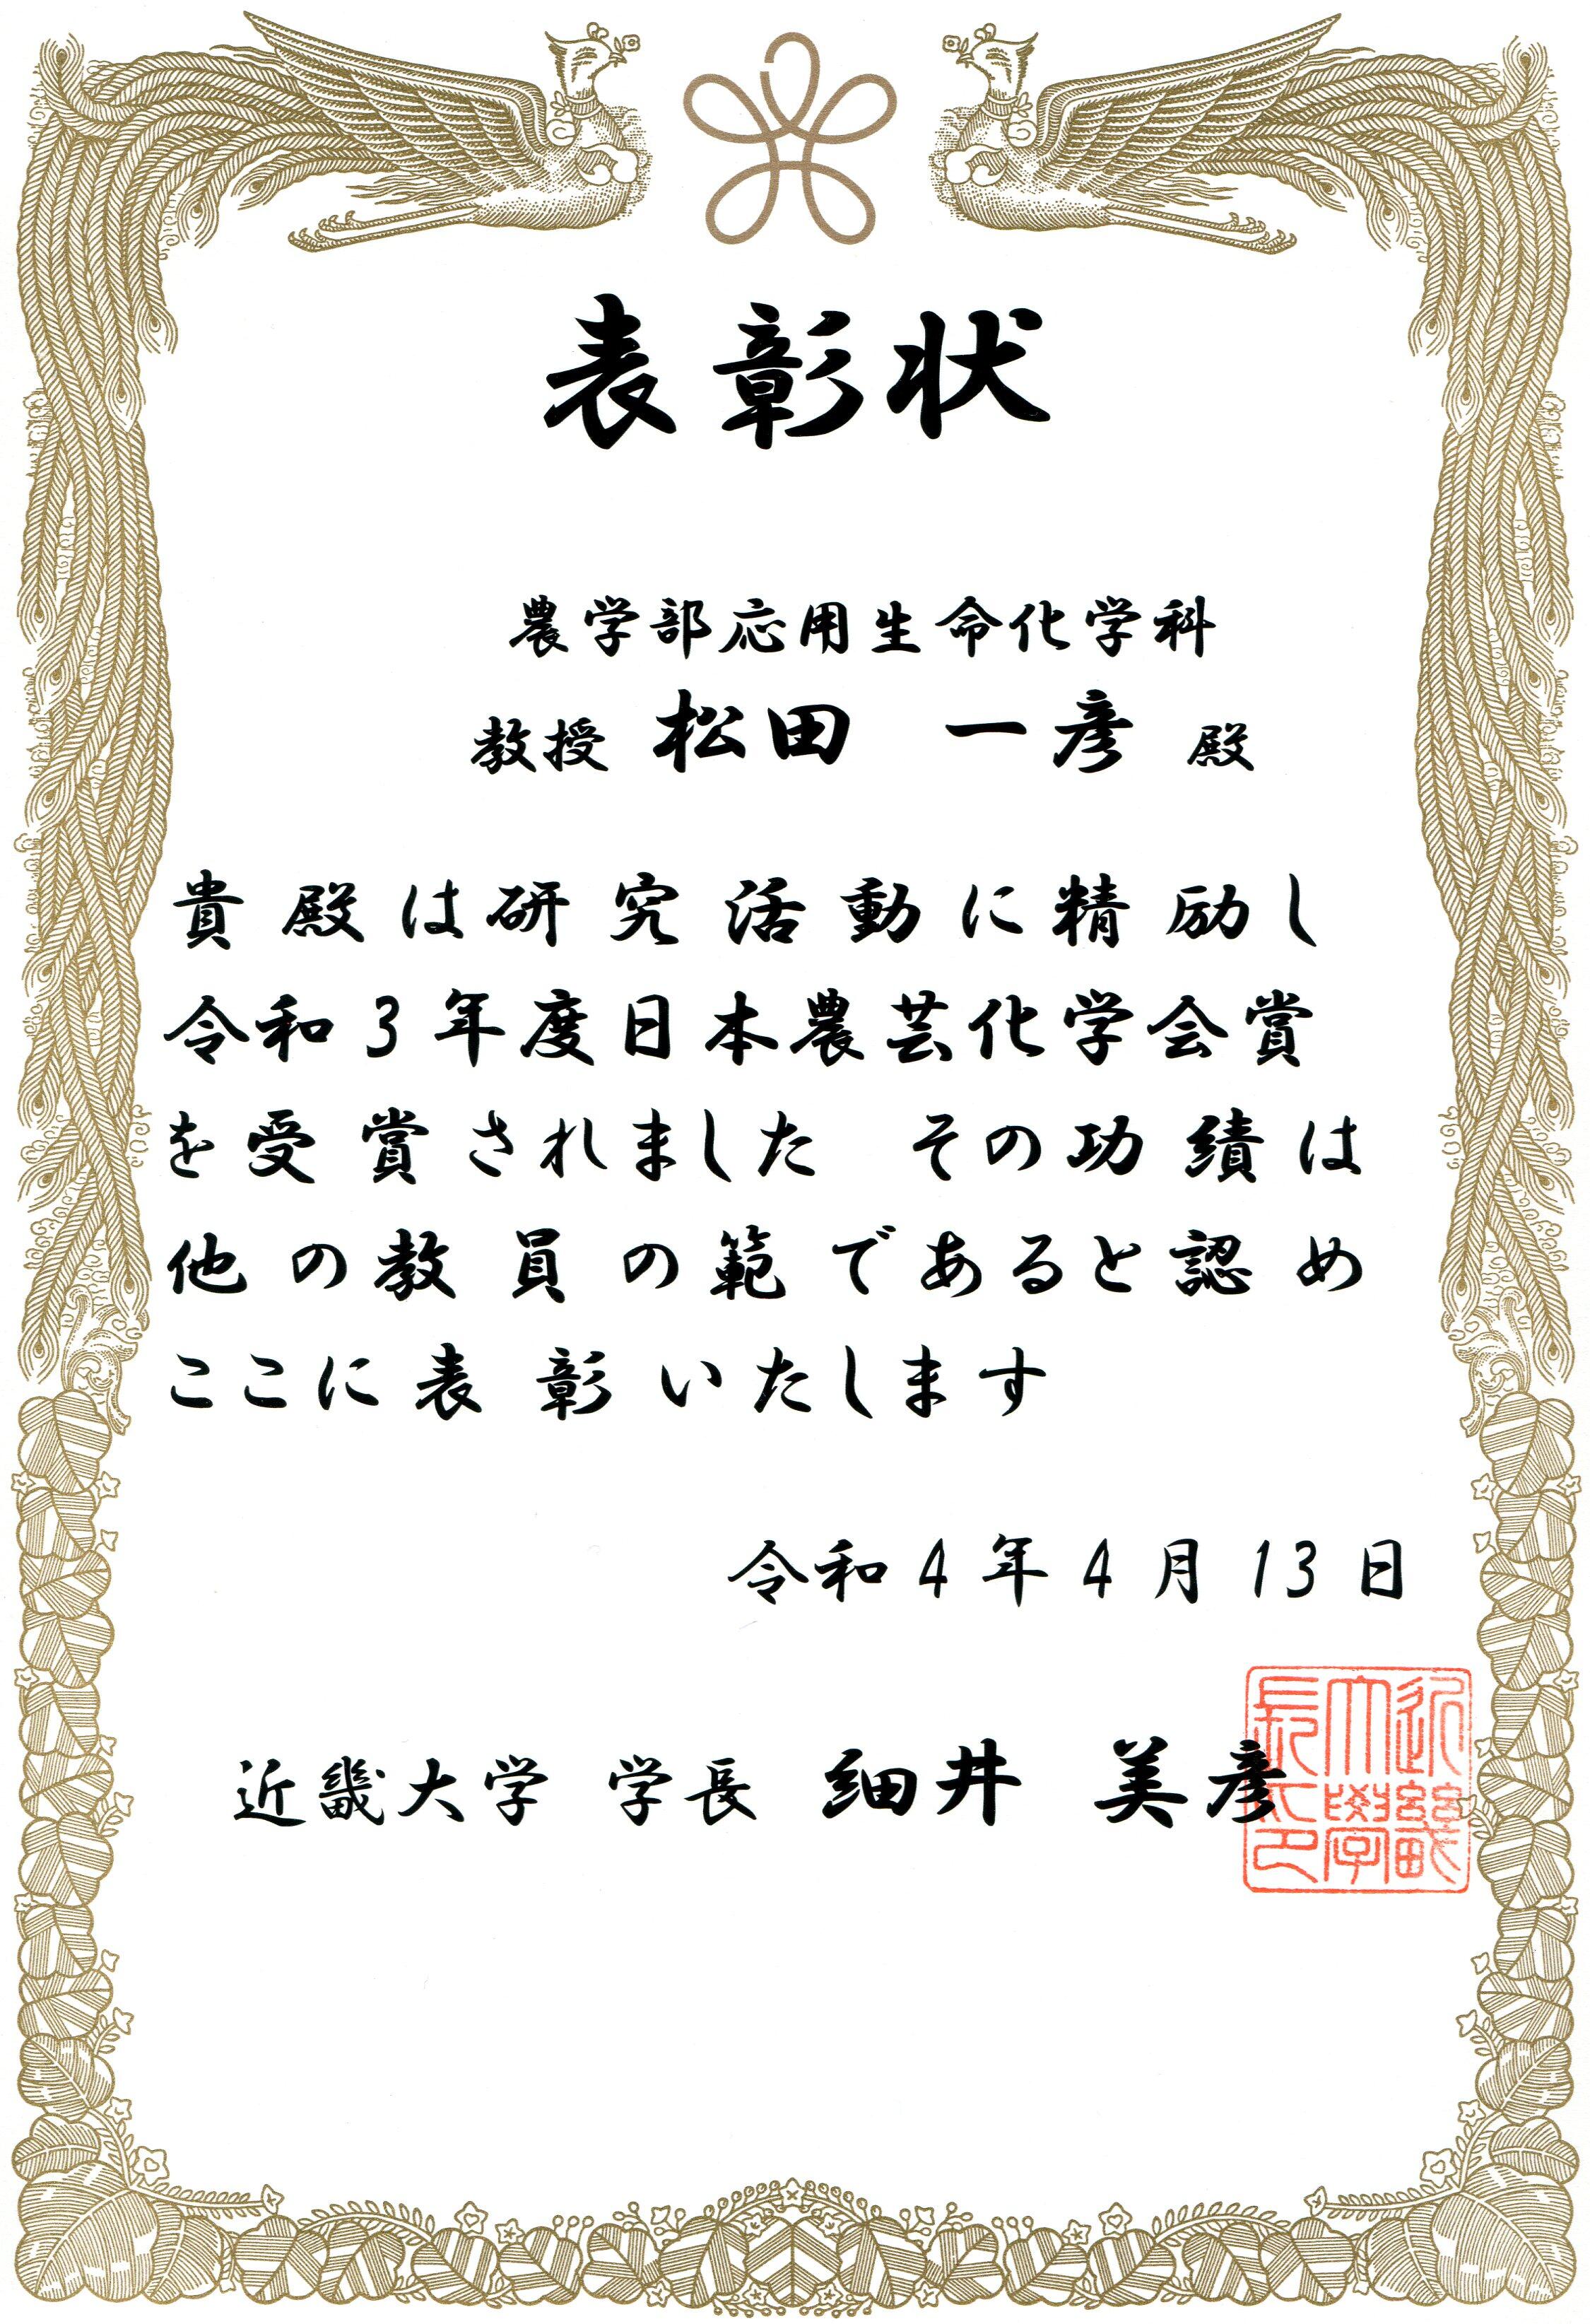 表彰状
農学部応用生命化学科
教授 松田 一彦 殿
貴殿は研究活動に精励し
令和3年度日本農芸化学会賞
を受賞されました その功績は
他の教員の範であると認め
ここに表彰いたします
令和4年4月13日
近畿大学 学長 細井 美彦
近畿大學長印